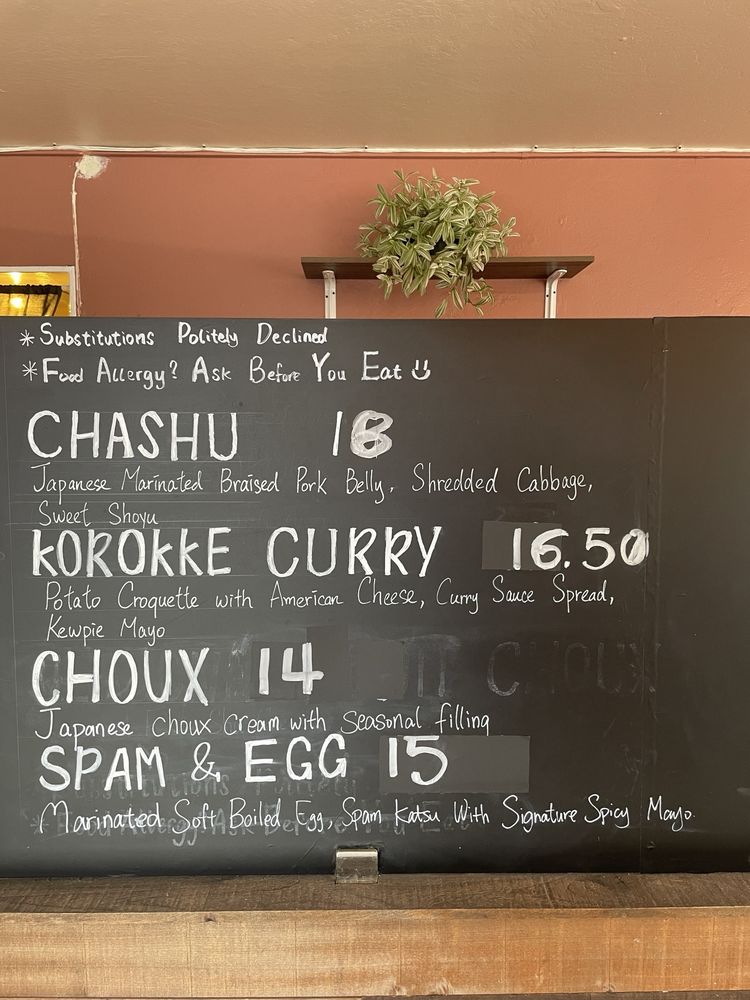 *Substitutions Politely Declined
*Food Allergy? Ask Before You Eat
CHASHU 18
Japanese Marinated Braised Pork Belly, Shredded Cabbage,
Sweet Shoyu
KOROKKE CURRY 16.50
Potato Croquette with American Cheese, Curry Sauce Spread,
Kewpie Mayo
CHOUX 14 CHOUX
Japanese choux cream with seasonal filling
SPAM & EGG 15
Marinated Soft Boiled Egg, Spam Katsu With Signature Spicy Mayo.